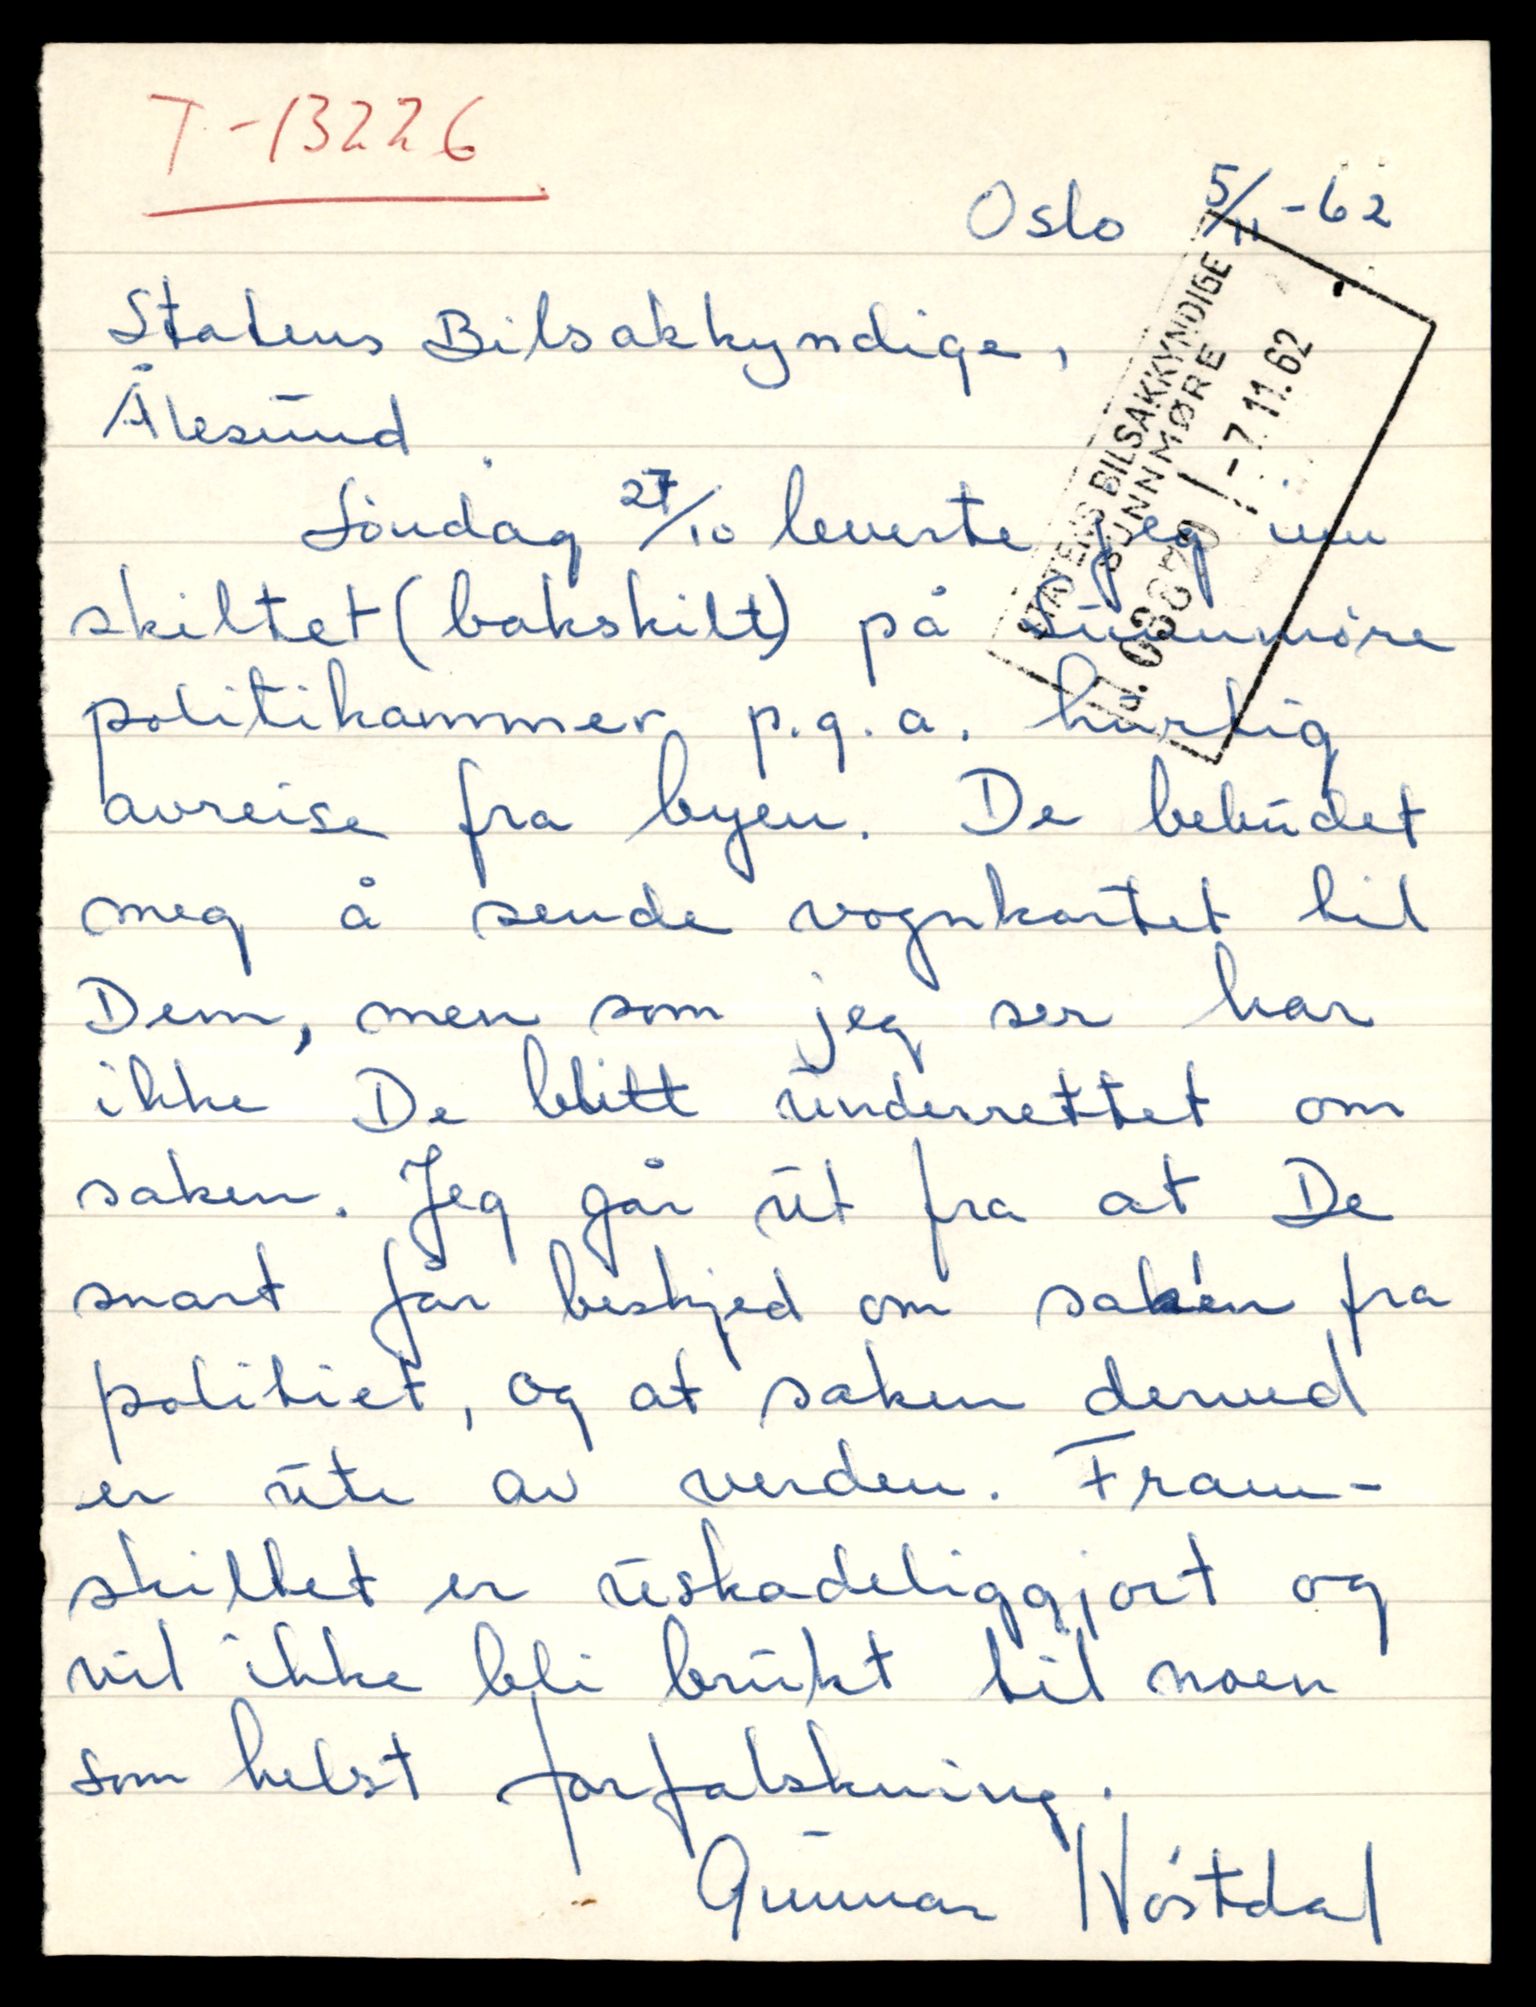 T-13226
Oslo 5/11-62
STATENS BILSAKKYNDIGE
SUNNMØRE
-7.11.62
Statens Bilsakkyndige,
Ålesund.
Søndag 27/10 leverte jeg inn
skiltet (bakskilt) på Sunnmøre
politikammer p.g.a. hurtig
avreise fra byen. De bebudet
meg å sende vognkortet til
Dem, men som jeg ser har
ikke De blitt underrettet om
saken. Jeg går ut fra at De
snart får beskjed om saken fra
politiet, og at saken dermed
er ute av verden. Fram-
skiltet er uskadeliggjort og
vil ikke bli brukt til noen
som helst forfalskning.
Gunnar Nøstdal